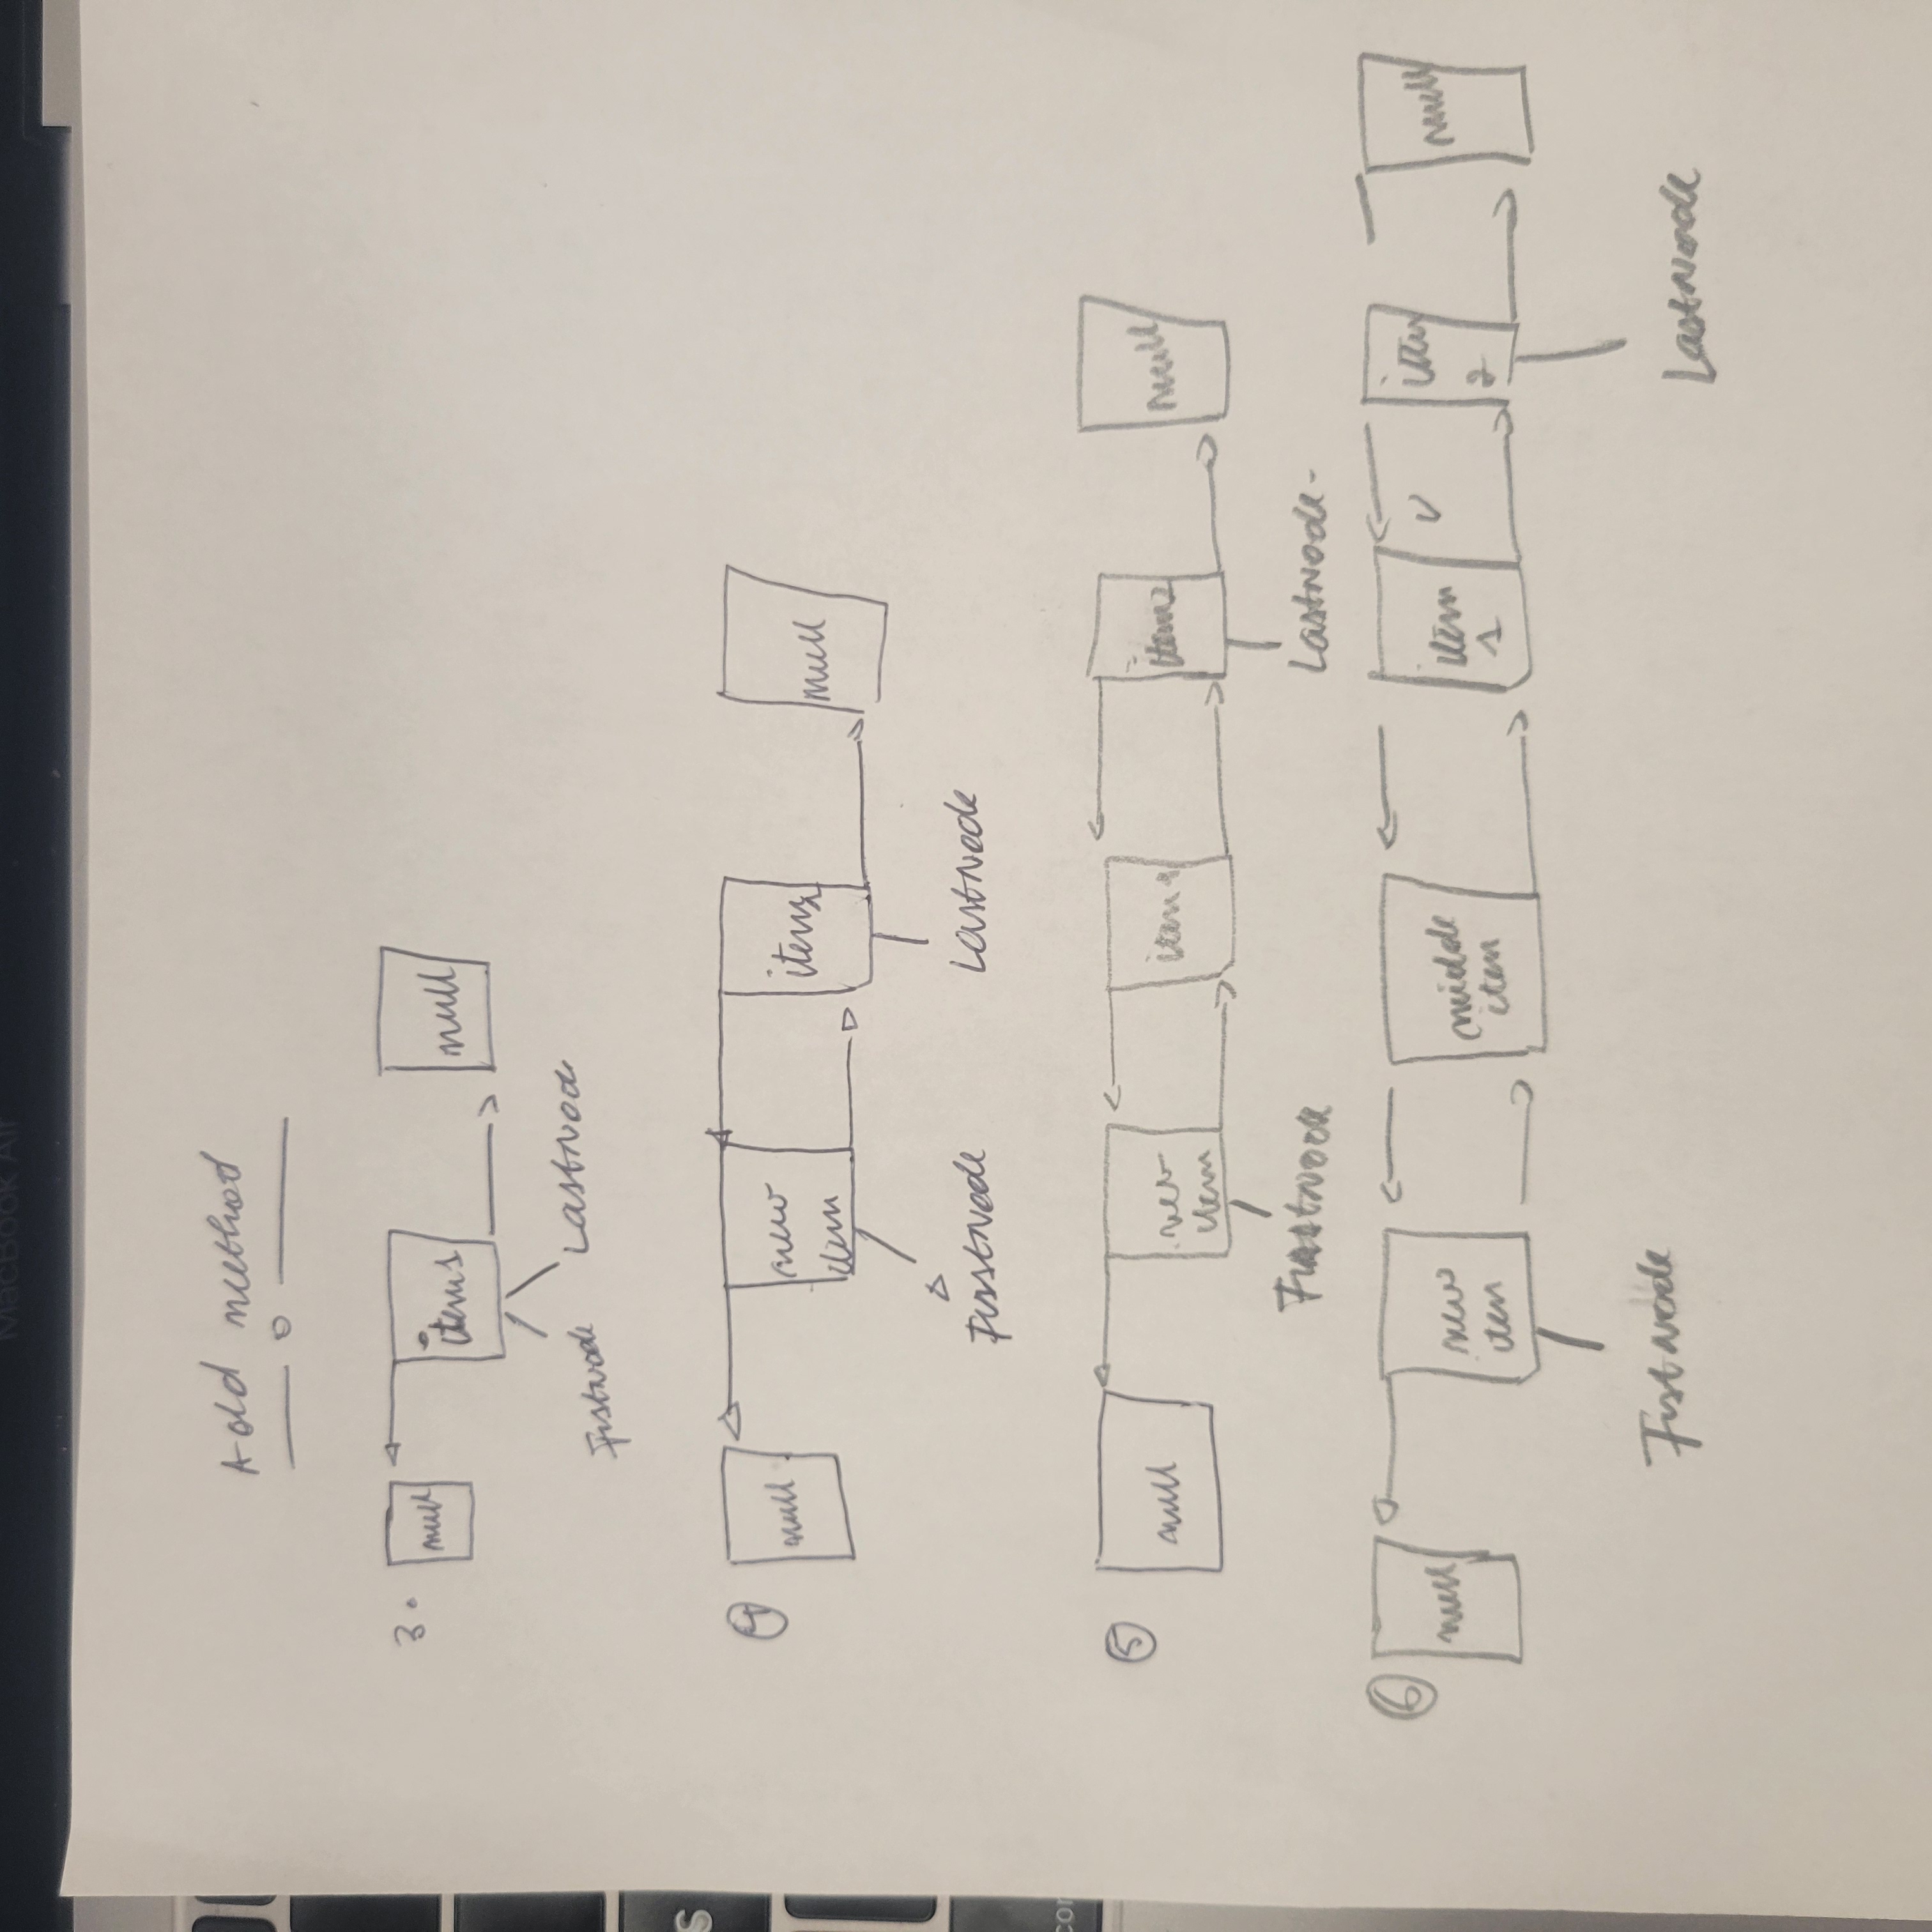 MacBook Air
Add method
3.
null
item1
null
Fistnode
LastNode
4
null
new
item
item2
null
FirstNode
LastNode
5
null
new
item
item1
item2
null
FirstNode
LastNode-
6
null
new
item
middle
item
item
1
item
2
null
FistNode
LastNode
S